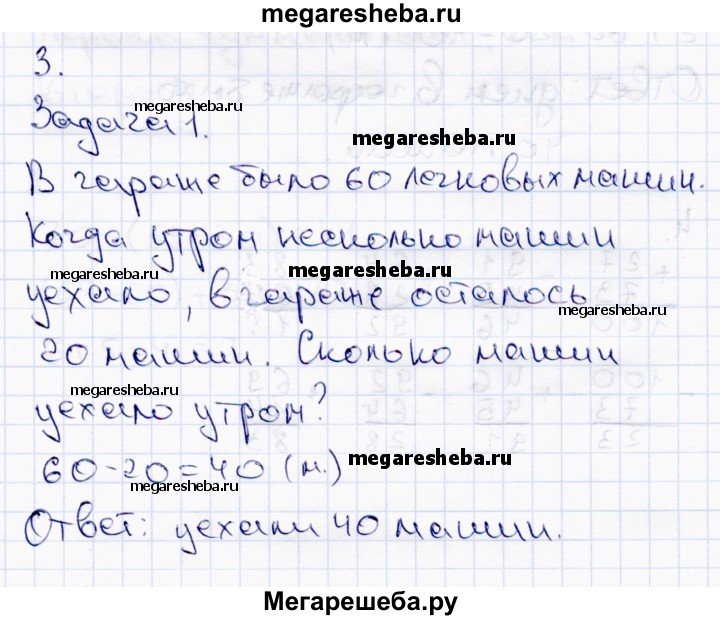 megaresheba.ru
3.
Задача 1.
megaresheba.ru
megaresheba.ru
В гараже было 60 легковых машин.
Когда утром несколько машин
megaresheba.ru
megaresheba.ru
уехало, в гараже осталось
megaresheba.ru
20 машин. Сколько машин
megaresheba.ru
уехало утром?
60-20=40 (м.)
megaresheba.ru
megaresheba.ru
Ответ: уехали 40 машин.
Мегарешеба.ру